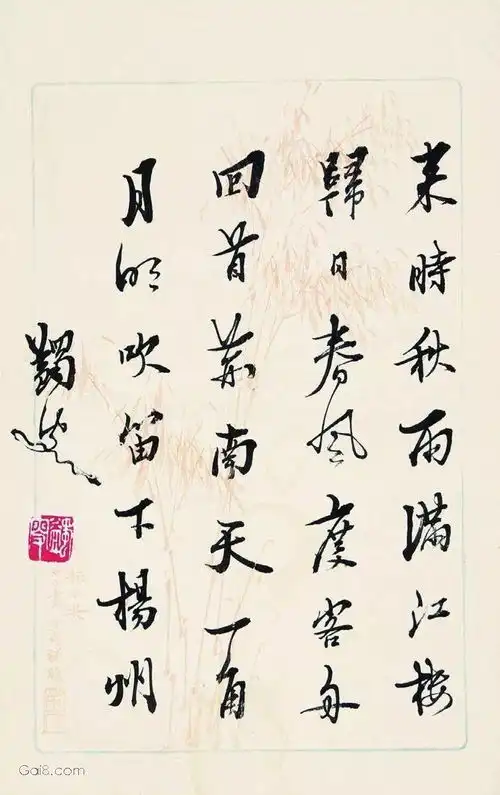 来時秋雨滿江樓
歸日春風度客舟
回首荊南天一角
月明吹笛下楊州
蠲叟
Gai8.com